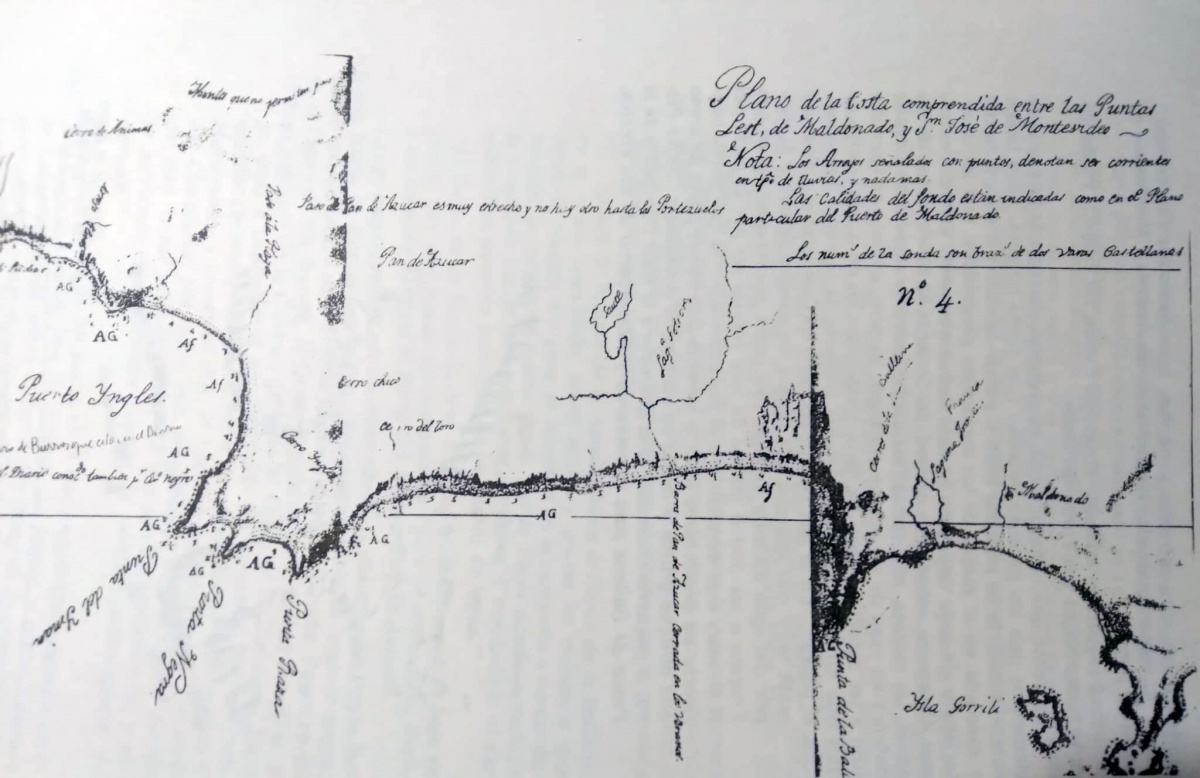 Plano de la Costa comprendida entre las Puntas
Lest, de Maldonado, y Sn José de Montevideo
Nota: Los Arroyos señalados con puntos, denotan ser corrientes
en tpo de lluvias, y nada mas.
Las Calidades del fondo están indicadas como en el Plano
particular del Puerto de Maldonado.
Los nums de la sonda son braz de dos varas Castellanas
Nº 4.
que no permiten
Cerro de Animas
Paso de Pan de Azucar es muy estrecho y no hay otro hasta los Portezuelos
Pan de Azucar
Cerro chico
Cerro del Toro
Cerro Yngles
Puerto Yngles.
AG
AG
Af
Af
AG
AG
AG
AG
AG
AG
Af
AG
Punta del Yman
Punta Negra
Punta Rasa
Sauce
Barra de Pan de Azucar Cerrada en los Veranos
Cerro de
Laguna
Maldonado
Punta de la Bal
Ysla Gorriti